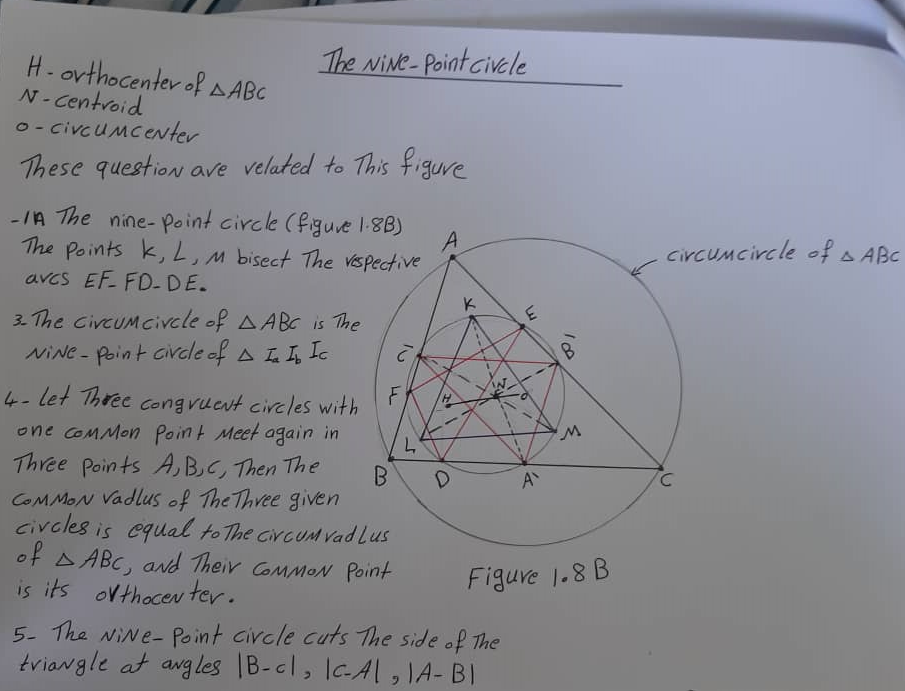 The NiNe-Point circle
H - orthocenter of △ABC
N - centroid
O - circumcenter
These question are related to This figure
-1A The nine-point circle (figure 1.8B)
The points K, L, M bisect The respective
arcs EF-FD-DE.
3-The circumcircle of △ABC is The
NiNe-point circle of △ Ia Ib Ic
4- Let Three congruent circles with
one common point meet again in
Three points A,B,C, Then The
common radius of The Three given
circles is equal to The circumradius
of △ABC, and Their common point
is its orthocenter.
5- The NiNe-Point circle cuts The side of The
triangle at angles |B-C|, |C-A|, |A-B|
circumcircle of △ABC
A
K
E
C̄
B̄
F
H
N
O
L
M
B
D
A'
C
Figure 1.8B